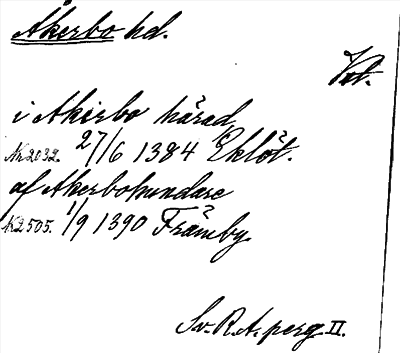 Åkerbo hd.
Vstm.
i Akirbo härad
Nr 2032. 27/6 1384 Eklöt.
af Akerbohundare
N 2505. 1/9 1390 Främby
Sv. R. A. perg. II.